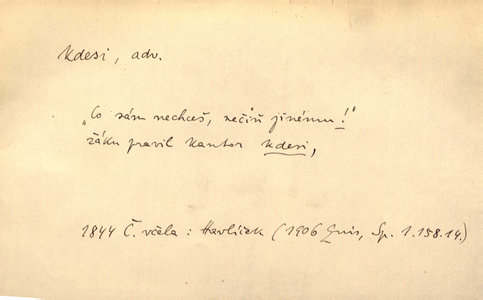 kdesi, adv.
„Co sám nechceš, nečiň jinému!"
žáku pravil kantor kdesi,
1844 Č. včela : Havlíček (1906 Quis, Sp. 1.158.14.)